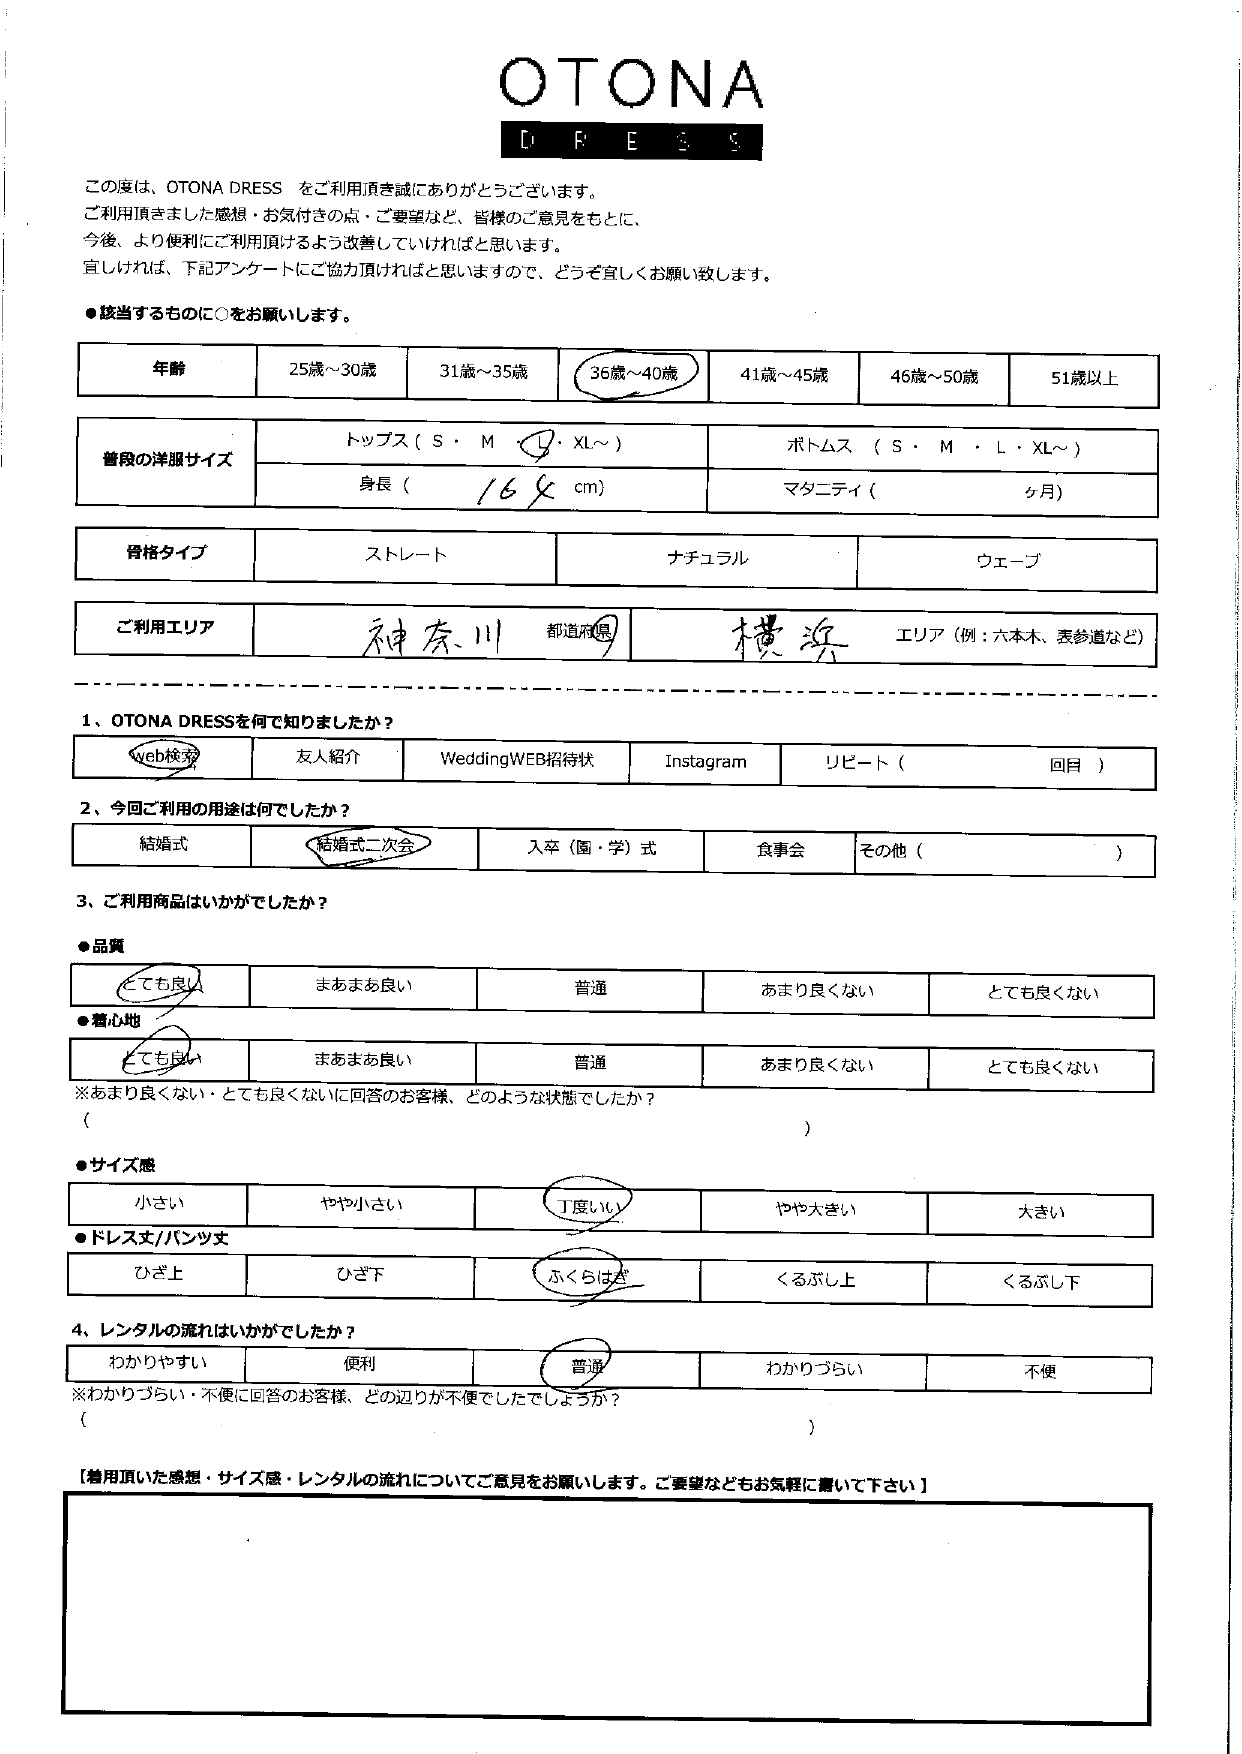 OTONA
DRESS
この度は、OTONA DRESS をご利用頂き誠にありがとうございます。
ご利用頂きました感想・お気付きの点・ご要望など、皆様のご意見をもとに、
今後、より便利にご利用頂けるよう改善していければと思います。
宜しければ、下記アンケートにご協力頂ければと思いますので、どうぞ宜しくお願い致します。
●該当するものに○をお願いします。
年齢 25歳～30歳 31歳～35歳 36歳～40歳 41歳～45歳 46歳～50歳 51歳以上
普段の洋服サイズ トップス ( S ・ M ・ L ・ XL～ ) ボトムス ( S ・ M ・ L ・ XL～ )
身長 ( 164 cm) マタニティ ( ヶ月)
骨格タイプ ストレート ナチュラル ウェーブ
ご利用エリア 神奈川 都道府県 横浜 エリア（例：六本木、表参道など）
1、OTONA DRESSを何で知りましたか？
web検索 友人紹介 WeddingWEB招待状 Instagram リピート ( 回目 )
2、今回ご利用の用途は何でしたか？
結婚式 結婚式二次会 入卒（園・学）式 食事会 その他 ( )
3、ご利用商品はいかがでしたか？
●品質
とても良い まあまあ良い 普通 あまり良くない とても良くない
●着心地
とても良い まあまあ良い 普通 あまり良くない とても良くない
※あまり良くない・とても良くないに回答のお客様、どのような状態でしたか？
( )
●サイズ感
小さい やや小さい 丁度いい やや大きい 大きい
●ドレス丈/パンツ丈
ひざ上 ひざ下 ふくらはぎ くるぶし上 くるぶし下
4、レンタルの流れはいかがでしたか？
わかりやすい 便利 普通 わかりづらい 不便
※わかりづらい・不便に回答のお客様、どの辺りが不便でしたでしょうか？
( )
【着用頂いた感想・サイズ感・レンタルの流れについてご意見をお願いします。ご要望などもお気軽に書いて下さい】